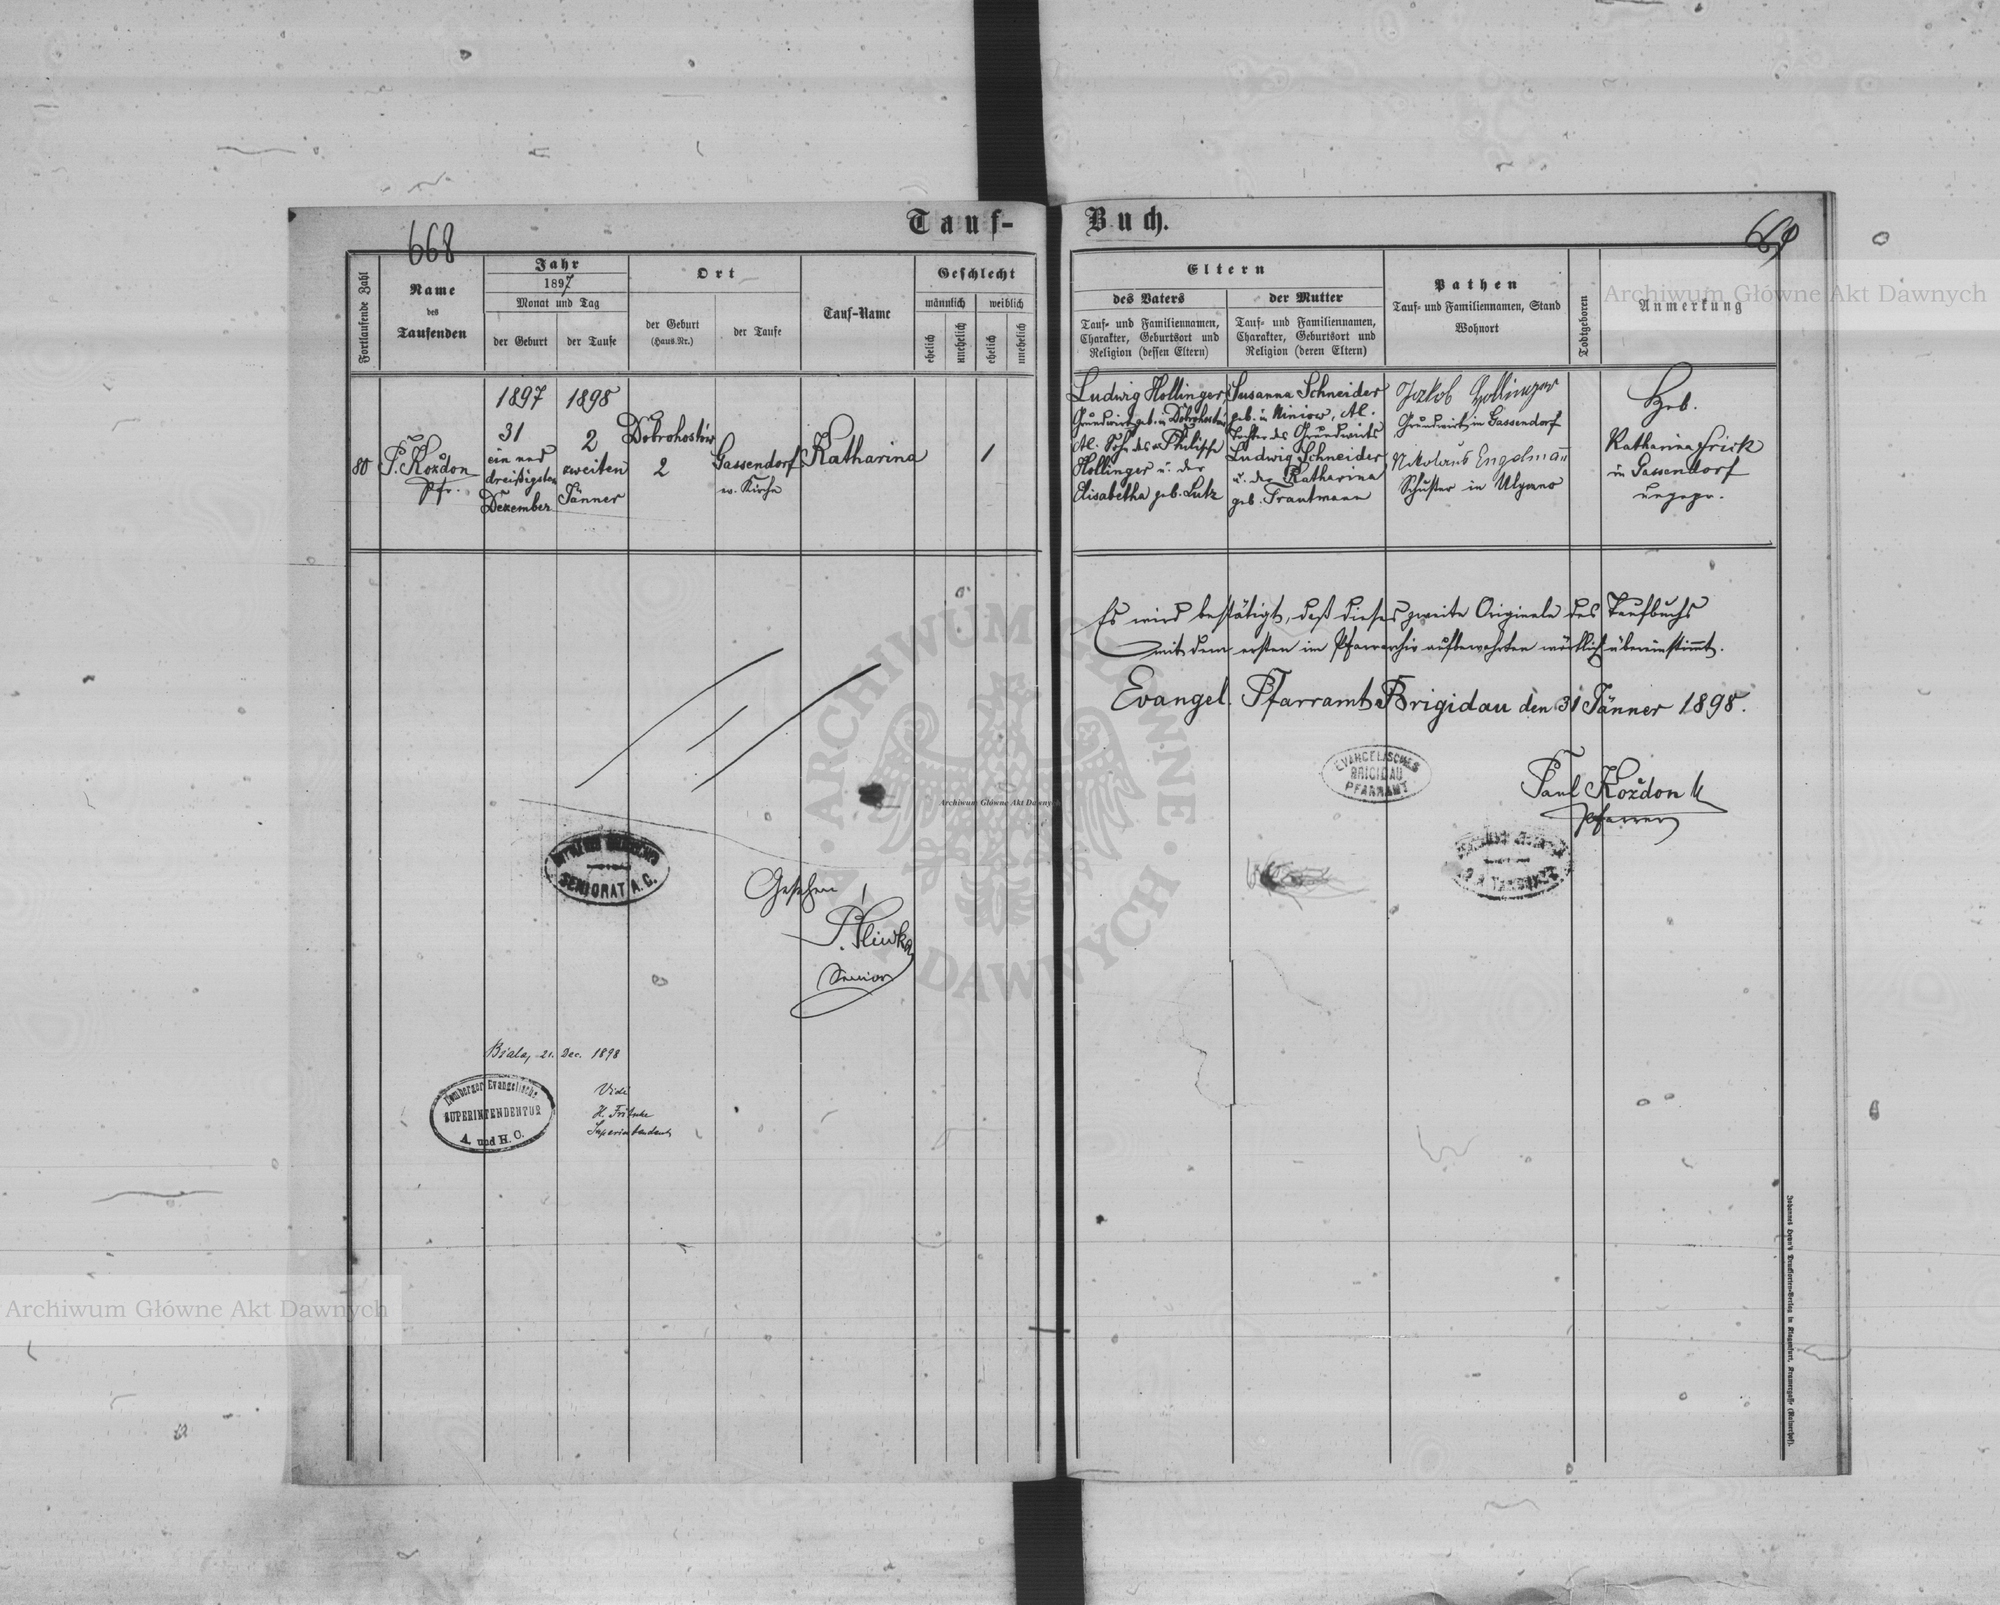 Tauf-
Buch.
668
669
Fortlaufende Zahl
Name
des
Taufenden
Jahr
1897
Monat und Tag
der Geburt
der Taufe
Ort
der Geburt
(Haus-Nr.)
der Taufe
Tauf-Name
Geschlecht
männlich
weiblich
ehelich
unehelich
ehelich
unehelich
Eltern
des Vaters
Tauf- und Familiennamen,
Charakter, Geburtsort und
Religion (dessen Eltern)
der Mutter
Tauf- und Familiennamen,
Charakter, Geburtsort und
Religion (deren Eltern)
Pathen
Tauf- und Familiennamen, Stand
Wohnort
Todtgeboren
Anmerkung
80
P. Kożdon
Pfr.
1897
31
ein und
dreißigsten
Dezember
1898
2
zweiten
Jänner
Dobrohostów
2
Gassendorf
w. Kirche
Katharina
1
Ludwig Hollinger,
Grundwirt geb. in Dobrohostów
AC. Sohn des Philipp
Hollinger u. der
Elisabetha geb. Lutz
Susanna Schneider
geb. in Winiow, AC.
Tochter des Grundwirts
Ludwig Schneider
u. der Katharina
geb. Trautmann
Jakob Hollinger
Grundwirt in Gassendorf
Nikolaus Engelmann
Schuster in Ulyczno
Heb.
Katharina Frick
in Gassendorf
ungepr.
Es wird bestätigt, daß dieses zweite Originale des Taufbuchs
mit dem ersten im Pfarrarchiv aufbewahrten wörtlich übereinstimmt.
Evangel. Pfarramt Brigidau den 31 Jänner 1898.
EVANGELISCHES
BRIGIDAU
PFARRAMT
Paul Kożdon
Pfarrer
SENIORAT A. C.
Gesehen
P. Kliwka
Senior
Biala, 21. Dec. 1898
Lemberger Evangelische
SUPERINTENDENTUR
A. und H. C.
Vidi
H. Fritsche
Superintendent
Archiwum Główne Akt Dawnych
Archiwum Główne Akt Dawnych
Archiwum Główne Akt Dawnych
ARCHIWUM GŁÓWNE AKT DAWNYCH